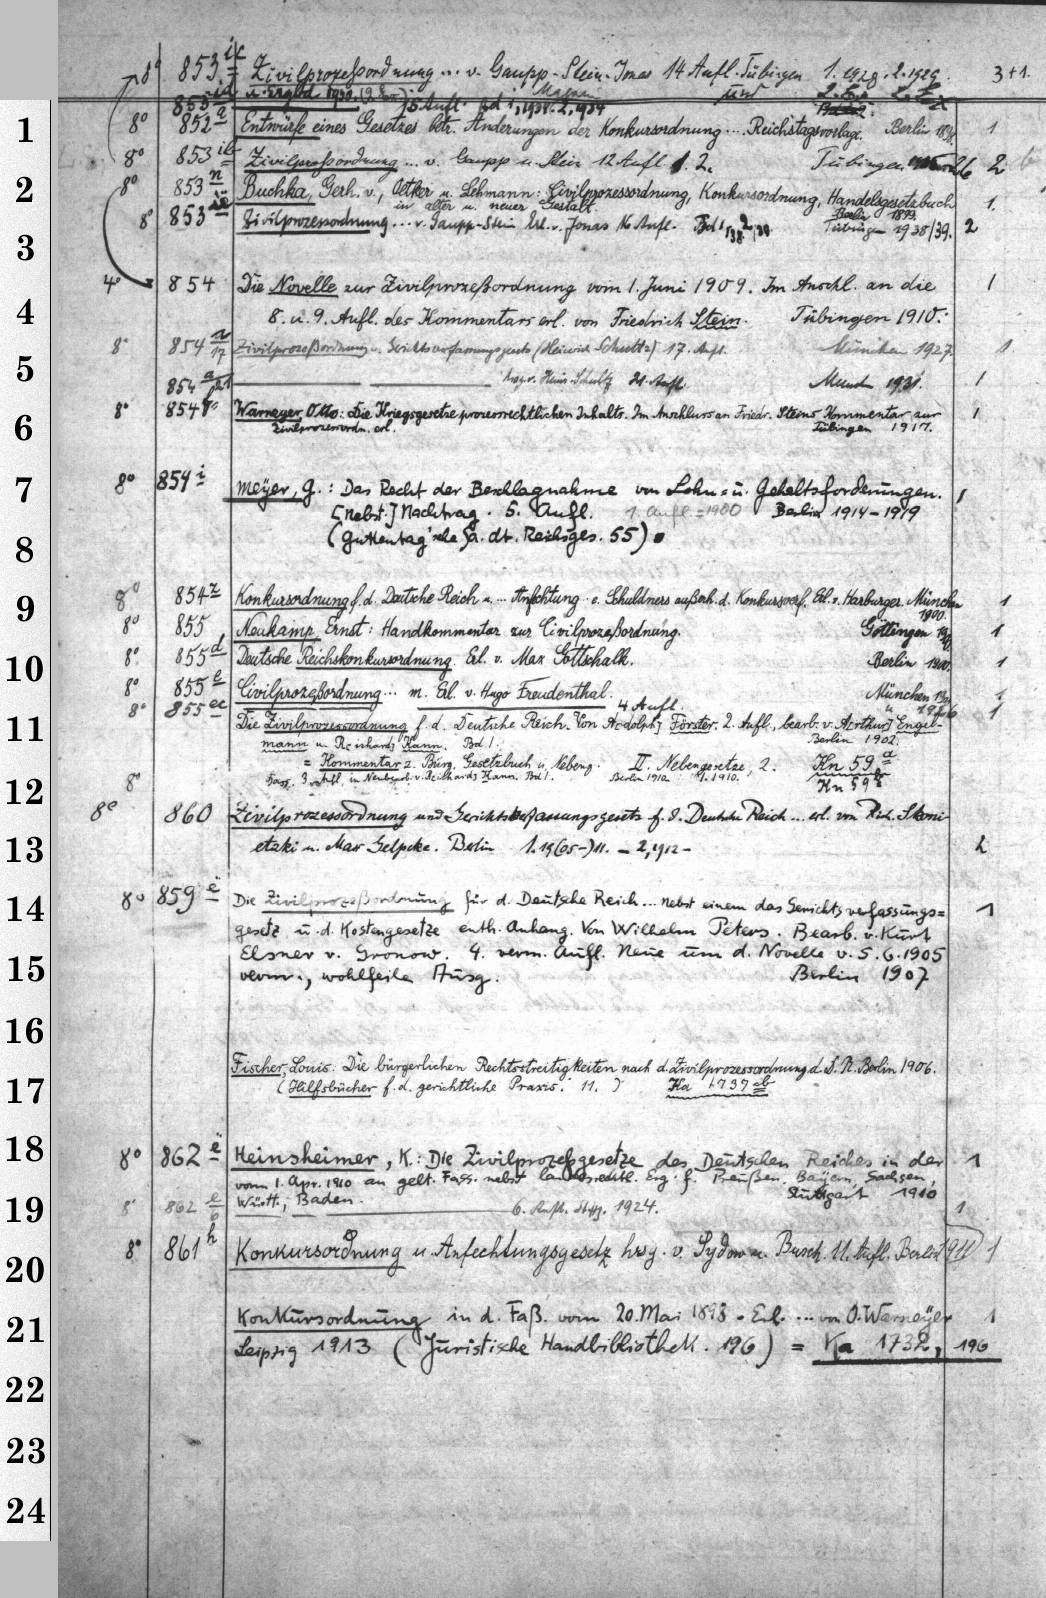 8° 853 ic Zivilprozeßordnung ... v. Gaupp-Stein-Jonas 14 Aufl. Tübingen 1. 1928. 2. 1929. 3+1
u. Ergbd 1930. und
15 Aufl. Bd 1, 1934. 2, 1934
1 8° 852 a Entwürfe eines Gesetzes betr. Änderungen der Konkursordnung .... Reichstagsvorlage. Berlin 1
8° 853 ib Zivilprozeßordnung ... v. Gaupp u. Stein 12 Aufl. 1. 2. Tübingen 2
2 8° 853 n Buchka, Gerh. v., Oetker u. Lehmann: Civilprozessordnung, Konkursordnung, Handelsgesetzbuch 1.
in alter u. neuer Gestalt. Berlin 1899.
8° 853 Zivilprozessordnung ... v. Gaupp-Stein Erl. v. Jonas 16 Aufl. Bd 1, 2, Tübingen 1938/39. 2
3
4° 854 Die Novelle zur Zivilprozeßordnung vom 1. Juni 1909. Im Anschl. an die 1
4 8. u. 9. Aufl. des Kommentars erl. von Friedrich Stein. Tübingen 1910.
8° 854 n/17 Zivilprozeßordnung u. Gerichtsverfassungsgesetz (Heinrich Schultz) 17. Aufl. München 1927. 1
5
854 hrsg. v. Heinr. Schultz 21. Aufl. 1931. 1
6 8° 854 Warneyer, Otto: Die Kriegsgesetze prozessrechtlichen Inhalts. Im Anschluss an Friedr. Steins Kommentar zur 1
Zivilprozessordn. erl. Tübingen 1917.
7 8° 854 i Meyer, G.: Das Recht der Beschlagnahme von Lohn- u. Gehaltsforderungen. 1
[Nebst.] Nachtrag. 5. Aufl. 1 Aufl. = 1900 Berlin 1914-1919
8 (Guttentag'sche S. a. dt. Reichsges. 55)
9 8° 854 z Konkursordnung f. d. Deutsche Reich u. ... Anfechtung e. Schuldners außerh. d. Konkursverf. Erl. v. Harburger. München 1
1900.
8° 855 Neukamp Ernst: Handkommentar zur Civilprozeßordnung. Göttingen 1
10 8° 855 d Deutsche Reichskonkursordnung. Erl. v. Max Gottschalk. Berlin 1900. 1
8° 855 e Civilprozeßordnung ... m. Erl. v. Hugo Freudenthal. München 1
8° 855 ec 4 Aufl. 1
11 Die Zivilprozessordnung f. d. Deutsche Reich. Von A[dolph] Förster. 2. Aufl., bearb. v. A[rthur] Engel-
mann u. R[einhard] Kann. Bd 1. Berlin 1902.
= Kommentar z. Bürg. Gesetzbuch u. Nebeng. II. Nebengesetze, 2. Kn 59 a
12 8° 3. Aufl. in Neubearb. v. Reinhard Kann. Bd 1. Berlin 1910. Kn 59
8° 860 Zivilprozessordnung und Gerichtsverfassungsgesetz f. d. Deutsche Reich ... erl. von Rich. Skoni-
13 etzki u. Max Gelpcke. Berlin 1. 19(05-)11. - 2, 1912 - 2
14 8° 859 e Die Zivilprozeßordnung für d. Deutsche Reich ... nebst einem das Gerichtsverfassungs= 1
gesetz u. d. Kostengesetze enth. Anhang. Von Wilhelm Peters. Bearb. v. Kurt
15 Elsner v. Gronow. 4. verm. Aufl. Neue um d. Novelle v. 5. 6. 1905
verm., wohlfeile Ausg. Berlin 1907
16
Fischer, Louis: Die bürgerlichen Rechtsstreitigkeiten nach d. Zivilprozessordnung d. D. R. Berlin 1906.
17 (Hilfsbücher f. d. gerichtliche Praxis. 11.) Ka 1737
18 8° 862 e Heinsheimer, K.: Die Zivilprozeßgesetze des Deutschen Reiches in der 1
vom 1. Apr. 1910 an gelt. Fass. nebst landesrechtl. Erg. f. Preußen, Bayern, Sachsen,
19 Württ., Baden. Stuttgart 1910
8° 862 e/6 6. Aufl. Stttg. 1924. 1
20 8° 861 h Konkursordnung u. Anfechtungsgesetz hrsg. v. Sydow u. Busch. 11. Aufl. Berlin 1911 1
21 Konkursordnung in d. Faß. vom 20. Mai 1898. Erl. ... von O. Warneyer 1
Leipzig 1913 (Juristische Handbibliothek. 196) = Ka 1732, 196
22
23
24